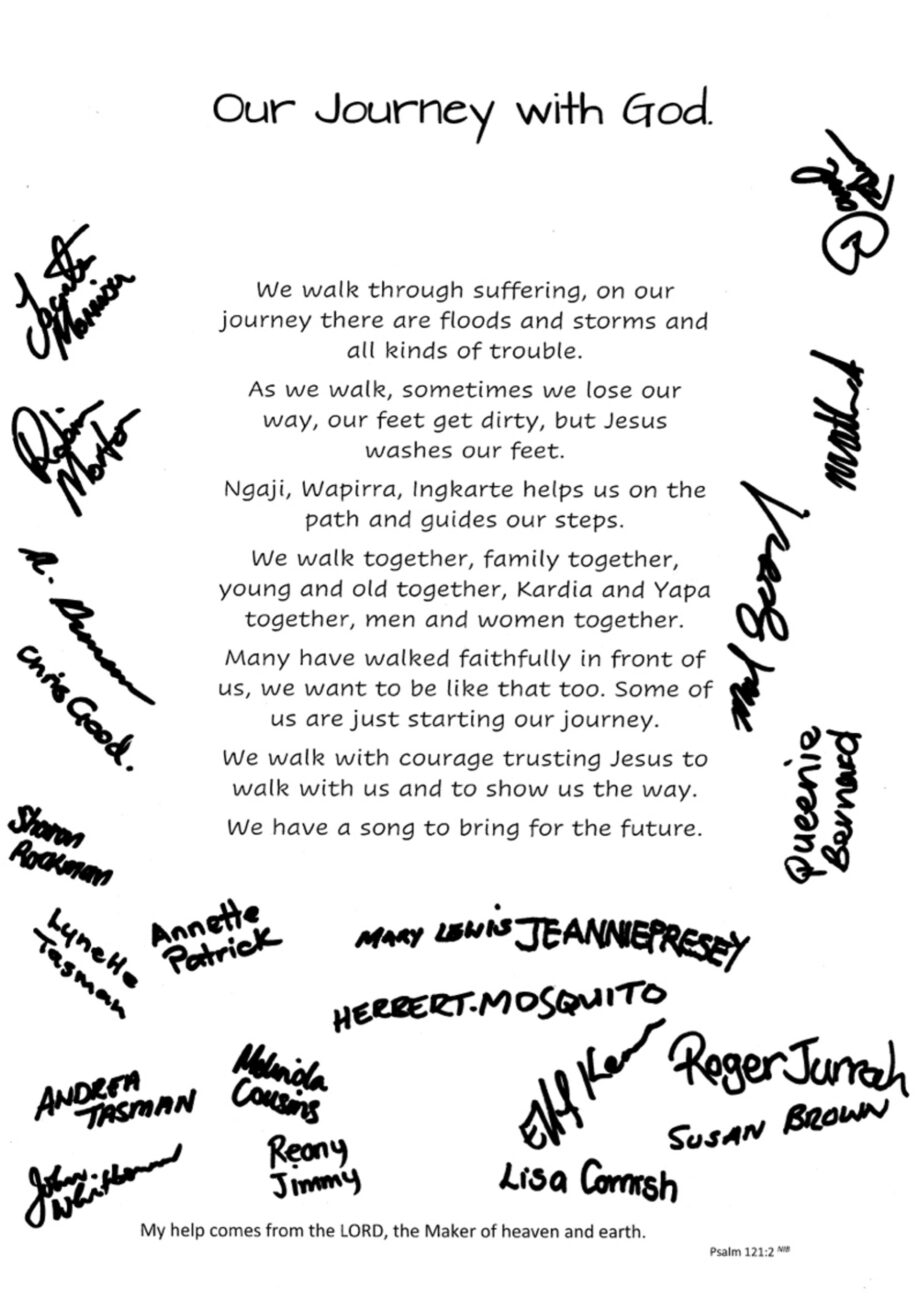 Our Journey with God.
We walk through suffering, on our
journey there are floods and storms and
all kinds of trouble.
As we walk, sometimes we lose our
way, our feet get dirty, but Jesus
washes our feet.
Ngaji, Wapirra, Ingkarte helps us on the
path and guides our steps.
We walk together, family together,
young and old together, Kardia and Yapa
together, men and women together.
Many have walked faithfully in front of
us, we want to be like that too. Some of
us are just starting our journey.
We walk with courage trusting Jesus to
walk with us and to show us the way.
We have a song to bring for the future.
Robin
Morton
Chris Good.
Queenie
Bernard
Sharon
Rockman
Lynette
Tasman
Annette
Patrick
MARY LEWIS
JEANNIE PRESEY
HERBERT.MOSQUITO
ANDREA
TASMAN
Melinda
Cousins
Roger Jurrah
SUSAN BROWN
John
Reony
Jimmy
Lisa Cornish
My help comes from the LORD, the Maker of heaven and earth.
Psalm 121:2 NIB